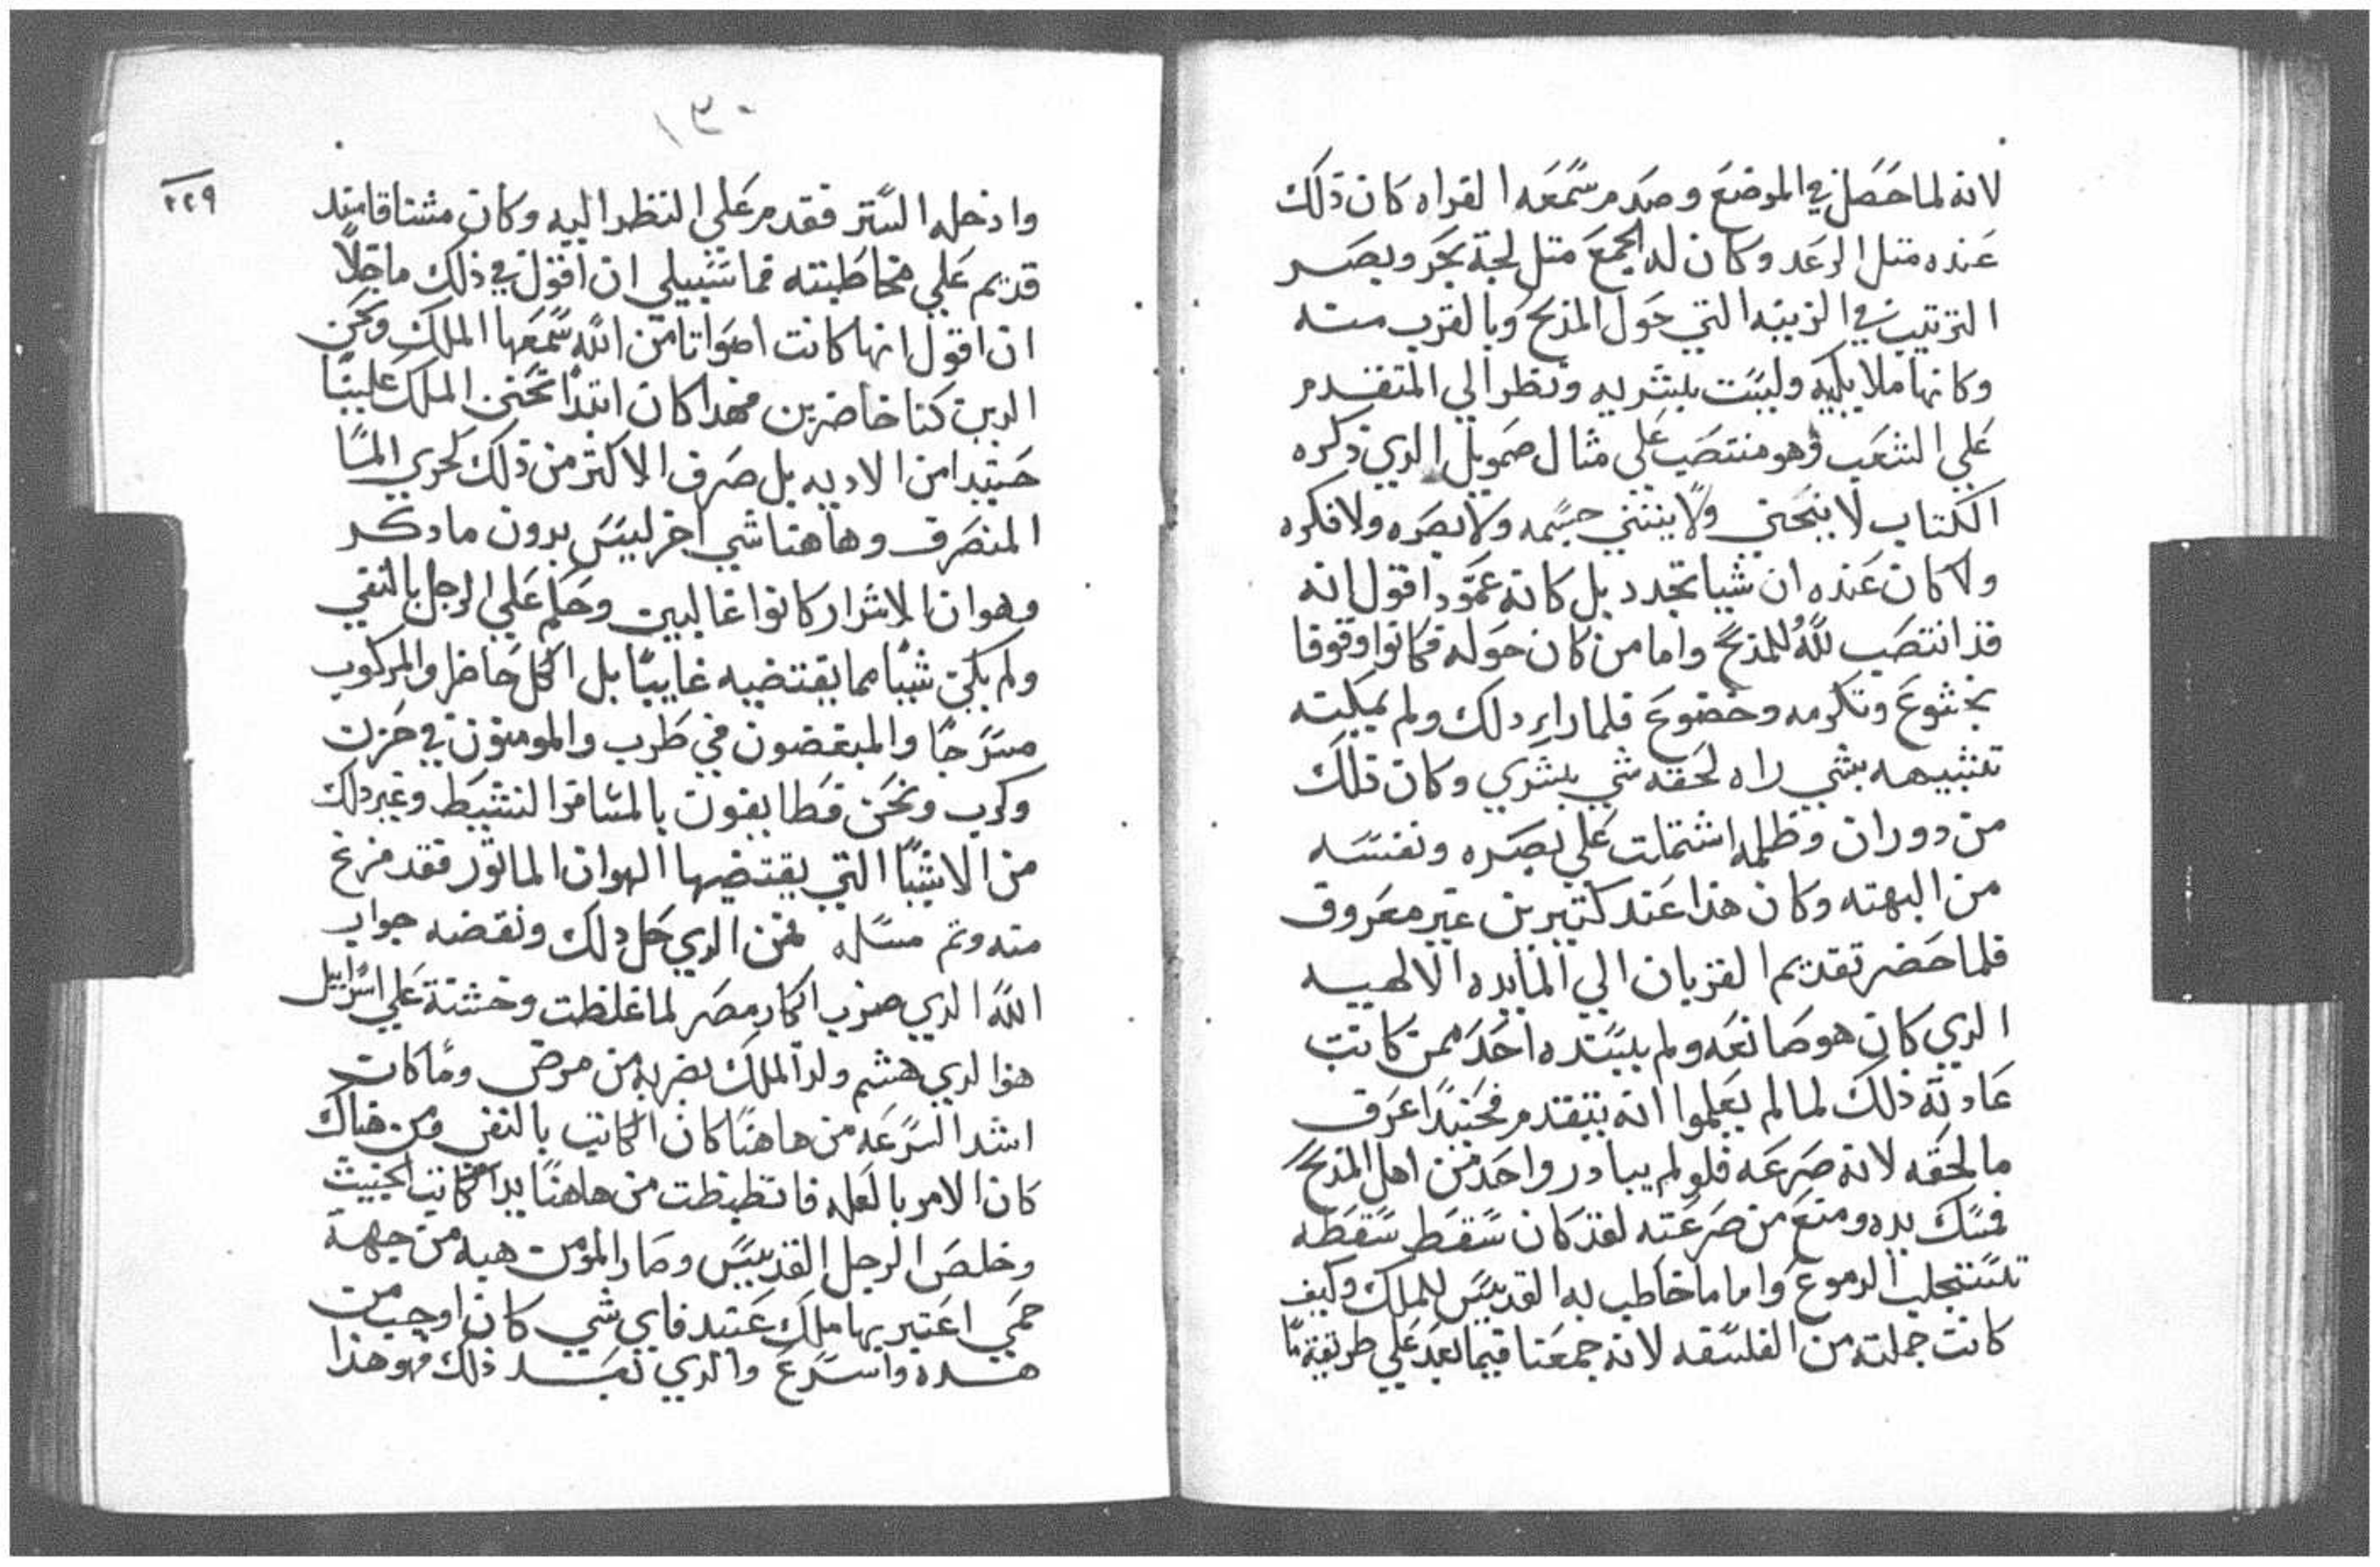 لانه لما حصل في الموضع وصدم سمعه القراه كان ذلك
عنده متل الرعد وكان له الجمع متل لجة بحر وبصر
الترتيب في الزينه التي حول المذبح وبالقرب منه
وكانها ملايكيه وليست بشريه ونظر الي المتقدم
علي الشعب وهو منتصب علي مثال صمويل الدي دكره
الكتاب لا ينحني ولا ينتني جسمه ولا بصره ولا فكره
ولا كان عنده ان شيا تجدد بل كانه عمود اقول انه
قد انتصب لله للمذبح واما من كان حوله فكانوا وقوفا
بخشوع وتكرمه وخضوع فلما راي دلك ولم يمكنه
تشبيهه بشي راه لحقه شي بشري وكان ذلك
من دوران وظلمه اشتملت علي بصره ونفسه
من البهته وكان هذا عند كتيرين غير معروف
فلما حضر تقديم القربان الي المايده الالهيه
الدي كان هو صانعه ولم يسنده احد ممن كانت
عادته ذلك لما لم يعلموا انه يتقدم فحينيدا عرف
ما لحقه لانه صرعه فلو لم يبادر واحد من اهل المذبح
فمسك يده ومنع من صرعته لقد كان سقط سقطه
تستجلب الدموع واما ما خاطب به القديس للملك وكيف
كانت جملته من الفلسفه لانه جمعنا فيما بعد علي طريقة ما
١٣٠
٢٢٩
وادخله الستر فقدم علي النظر اليه وكان مشتاقا مند
قديم علي مخاطبته فما سبيلي ان اقول في ذلك ما خلا
ان اقول انها كانت اصواتا من الله سمعها الملك ونحن
الدين كنا حاضرين فهدا كان ابتدا تحنن الملك علينا
حينيدا من الاديه بل صرف الاكتر من ذلك كجري الما
المنصرف وهاهنا شي اخر ليس بدون ما دكر
وهو ان الاشرار كانوا غالبين وحكم علي الرجل بالنفي
ولم يكن شيا مما يقتضيه غايبا بل الكل حاضر والمركوب
مسرجا والمبغضون في طرب والمومنون في حزن
وكرب ونحن فطايفون بالمسافر النشيط وغير دلك
من الاشيا التي يقتضيها الهوان الماتور فقد فرغ
منه وتم مسله فمن الدي حل دلك ونقضه جواب
الله الدي ضرب ابكار مصر لما غلظت وخشنة علي اسراييل
هو الدي هشم ولد الملك بضربه من مرض وما كان
اشد السرعه من هاهنا كان الكاتب بالنفي ومن هناك
كان الامر بالعله من هاهنا يد الكاتب الخبيث
وخلص الرجل القديس وصار المومن هبه من جهة
حمي اعتبر بها ملك عتيد فاي شي كان اوجب من
هده واسرع والدي بعد ذلك فهو هذا